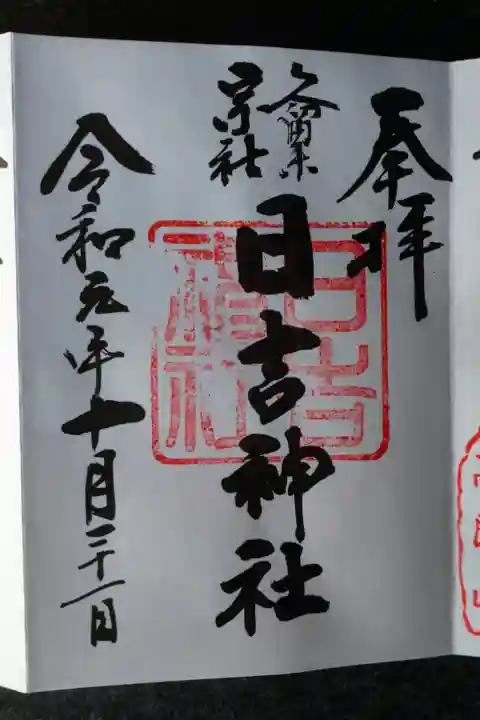 奉拝
久留米
宗社
日吉神社
日吉
神社
令和元年十月二十一日